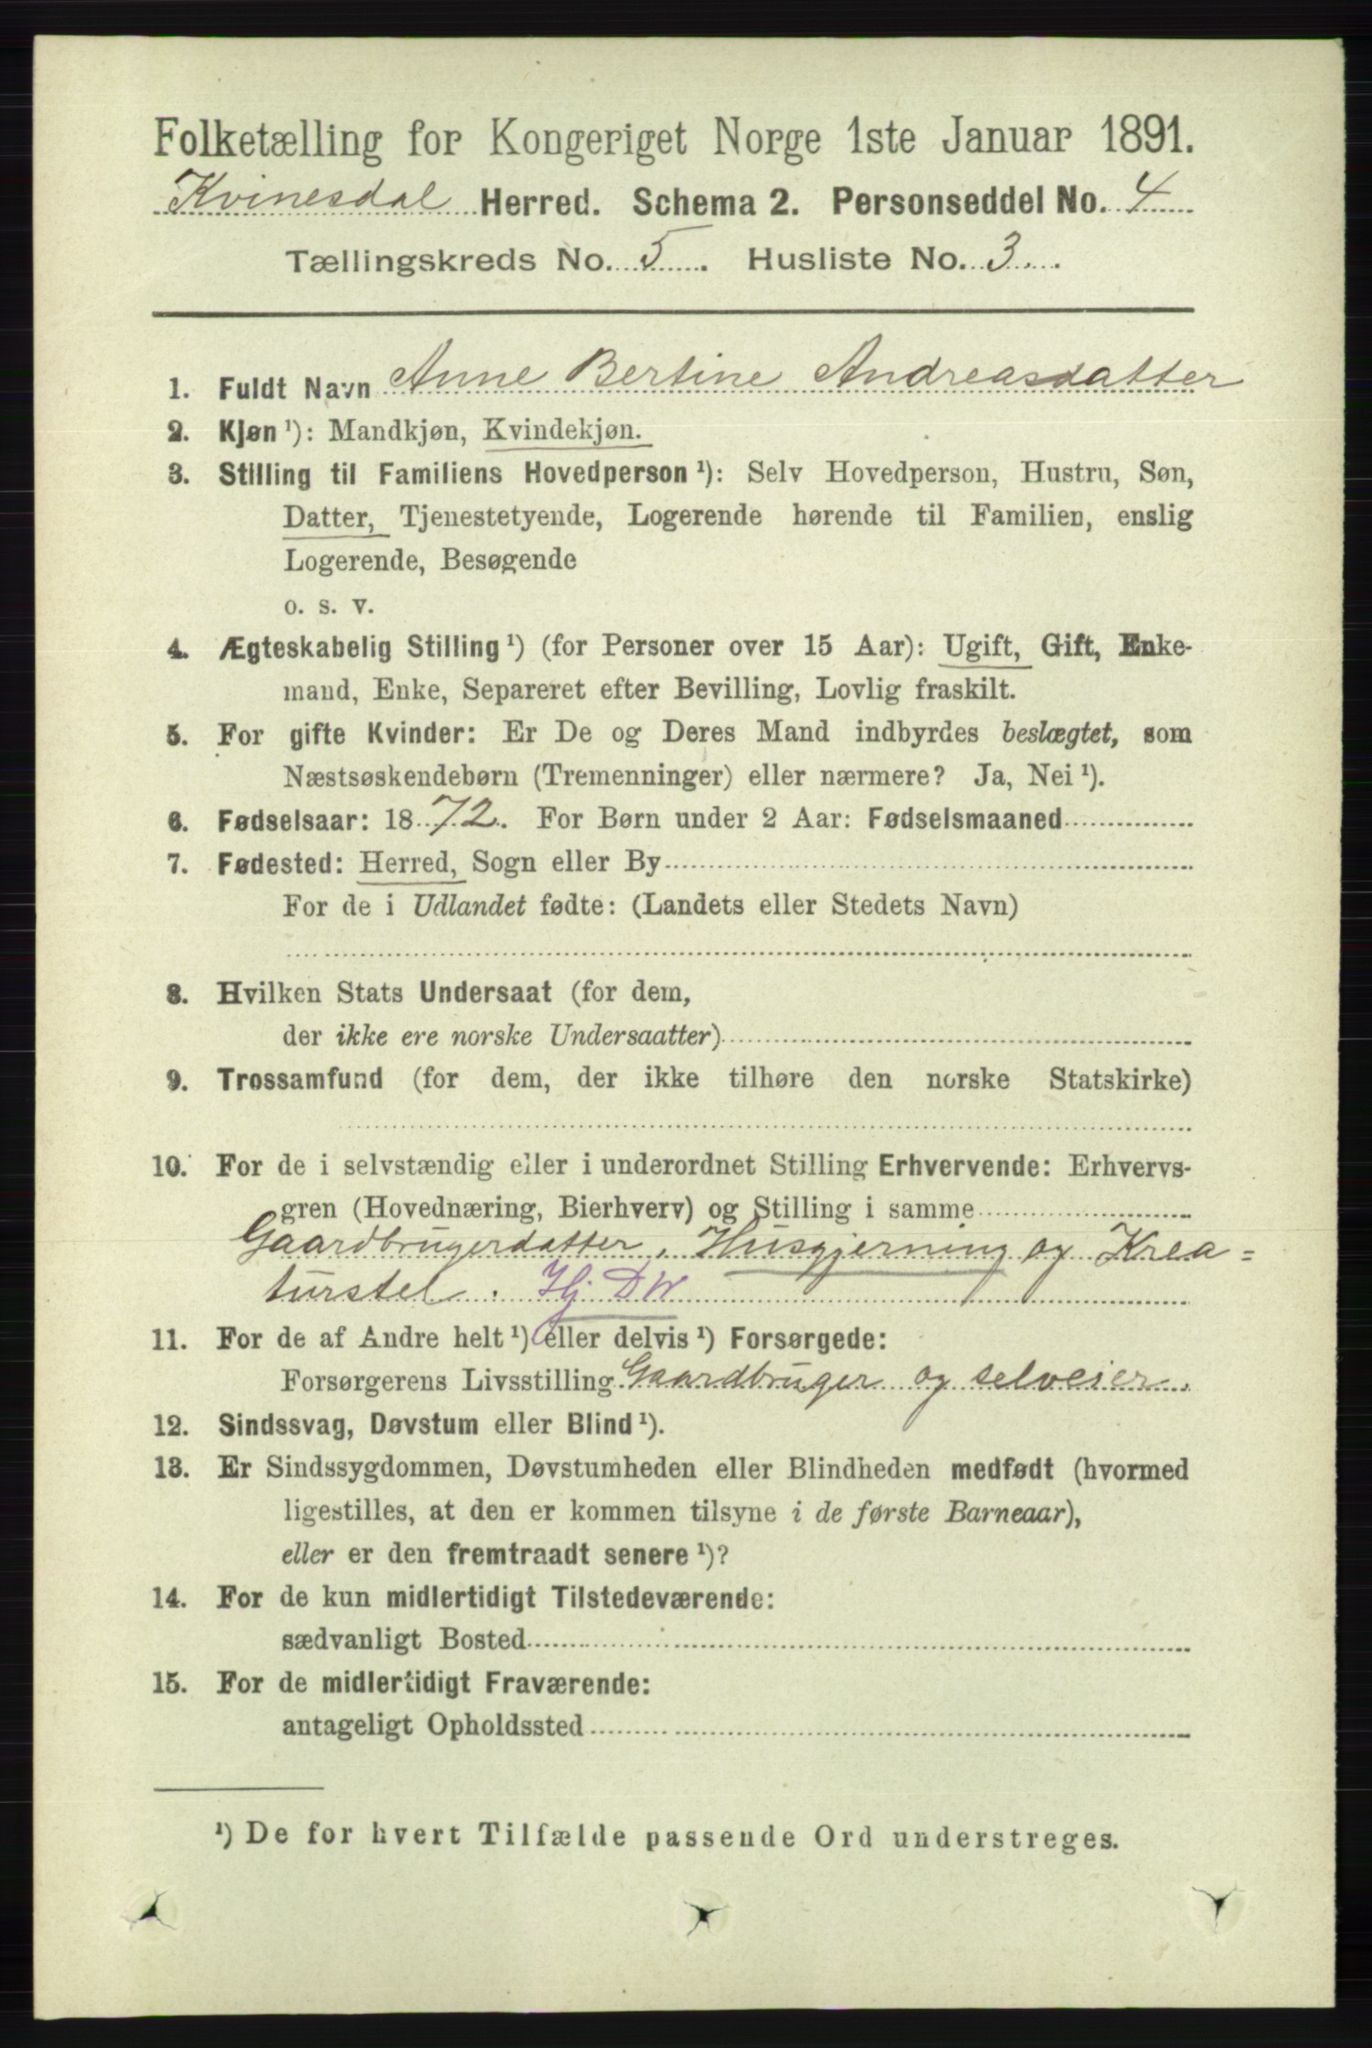 Folketælling for Kongeriget Norge 1ste Januar 1891.
Kvinesdal Herred. Schema 2. Personseddel No. 4
Tællingskreds No. 5. Husliste No. 3
1. Fuldt Navn Anne Bertine Andreasdatter
2. Kjøn ¹): Mandkjøn, Kvindekjøn.
3. Stilling til Familiens Hovedperson ¹): Selv Hovedperson, Hustru, Søn,
Datter, Tjenestetyende, Logerende hørende til Familien, enslig
Logerende, Besøgende
o. s. v.
4. Ægteskabelig Stilling ¹) (for Personer over 15 Aar): Ugift, Gift, Enke-
mand, Enke, Separeret efter Bevilling, Lovlig fraskilt.
5. For gifte Kvinder: Er De og Deres Mand indbyrdes beslægtet, som
Næstsøskendebørn (Tremenninger) eller nærmere? Ja, Nei ¹).
6. Fødselsaar: 1872. For Børn under 2 Aar: Fødselsmaaned
7. Fødested: Herred, Sogn eller By
For de i Udlandet fødte: (Landets eller Stedets Navn)
8. Hvilken Stats Undersaat (for dem,
der ikke ere norske Undersaatter)
9. Trossamfund (for dem, der ikke tilhøre den norske Statskirke)
10. For de i selvstændig eller i underordnet Stilling Erhvervende: Erhvervs-
gren (Hovednæring, Bierhverv) og Stilling i samme
Gaardbrugerdatter. Husgjerning og Krea=
turstel. Hj DW
11. For de af Andre helt ¹) eller delvis ¹) Forsørgede:
Forsørgerens Livsstilling Gaardbruger og selveier.
12. Sindssvag, Døvstum eller Blind ¹).
13. Er Sindssygdommen, Døvstumheden eller Blindheden medfødt (hvormed
ligestilles, at den er kommen tilsyne i de første Barneaar),
eller er den fremtraadt senere ¹)?
14. For de kun midlertidigt Tilstedeværende:
sædvanligt Bosted
15. For de midlertidigt Fraværende:
antageligt Opholdssted
¹) De for hvert Tilfælde passende Ord understreges.